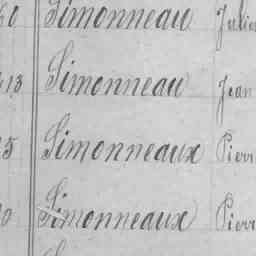 Simonneau Julien
13 Simonneau Jean
5 Simonneaux Pierr
0 Simonneaux Pierr